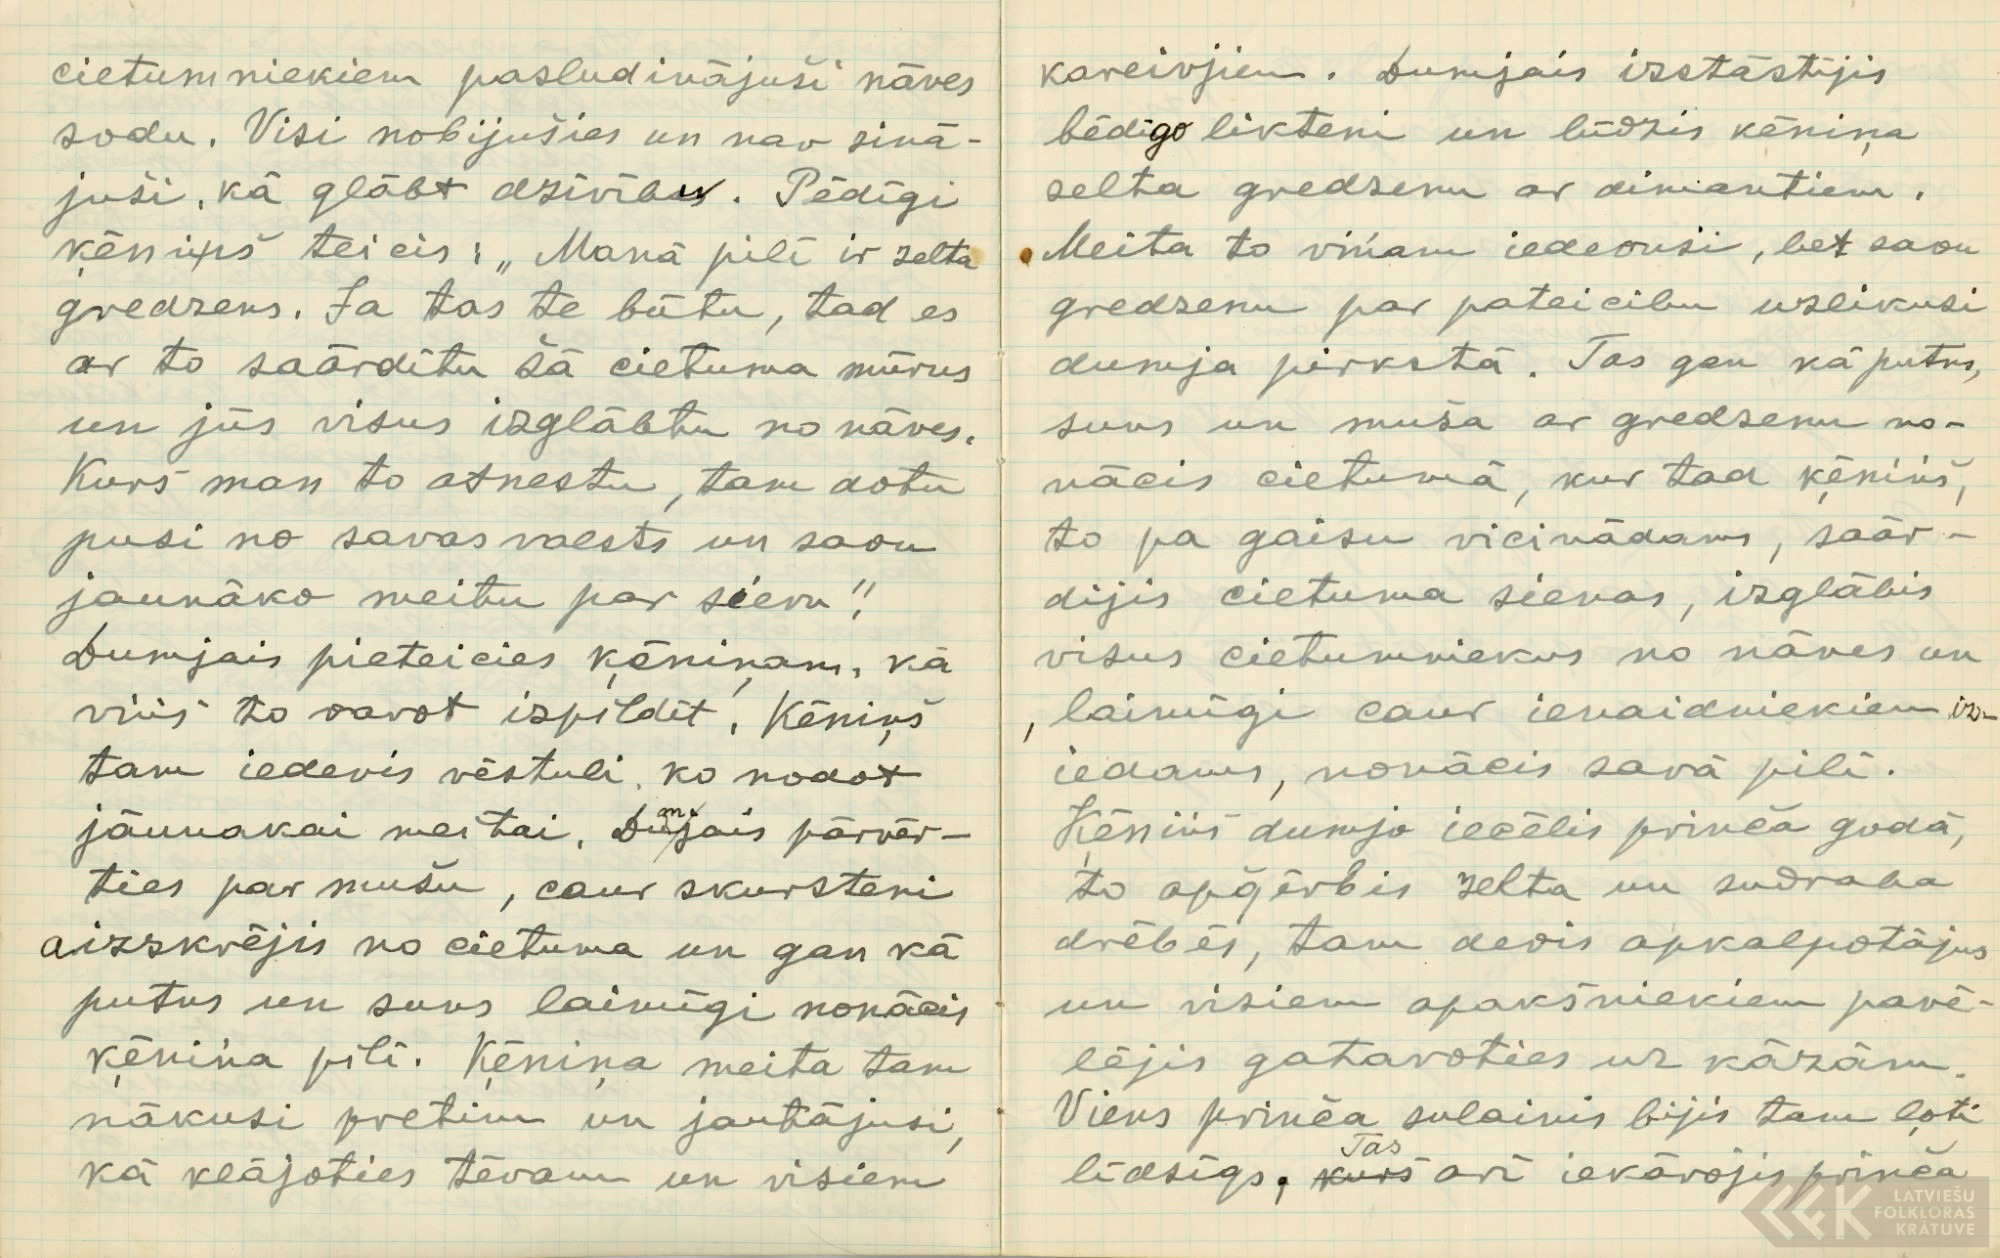 cietumniekiem pasludinājuši nāves
sodu. Visi nobijušies un nav zinā-
juši, kā glābt dzīvību. Pēdīgi
ķēniņš teicis: „Manā pilī ir zelta
gredzens. Ja tas te būtu, tad es
ar to saārdītu šā cietuma mūrus
un jūs visus izglābtu no nāves.
Kurš man to atnestu, tam dotu
pusi no savas valsts un savu
jaunāko meitu par sievu".
Dumjais pieteicies ķēniņam, kā
viņš to varot izpildīt. Ķēniņš
tam iedevis vēstuli, ko nodot
jaunākai meitai. Dumjais pārvēr-
ties par mušu, caur skursteni
aizskrējis no cietuma un gan kā
putns un suns laimīgi nonācis
ķēniņa pilī. Ķēniņa meita tam
nākusi pretim un jautājusi,
kā klājoties tēvam un visiem
kareivjiem. Dumjais izstāstījis
bēdīgo likteni un lūdzis ķēniņa
zelta gredzenu ar dimantiem.
Meita to viņam iedevusi, bet savu
gredzenu par pateicību uzlikusi
dumja pirkstā. Tas gan kā putns,
suns un muša ar gredzenu no-
nācis cietumā, kur tad ķēniņš,
to pa gaisu vicinādams, saār-
dījis cietuma sienas, izglābis
visus cietumniekus no nāves un
, laimīgi caur ienaidniekiem iz-
iedams, nonācis savā pilī.
Ķēniņš dumjo iecēlis prinča godā,
to apģērbis zelta un sudraba
drēbēs, tam devis apkalpotājus
un visiem apakšniekiem pavē-
lējis gatavoties uz kāzām.
Viens prinča sulainis bijis tam ļoti
līdzīgs, kurš Tas arī iekārojis prinča
LATVIEŠU
FOLKLORAS
KRĀTUVE